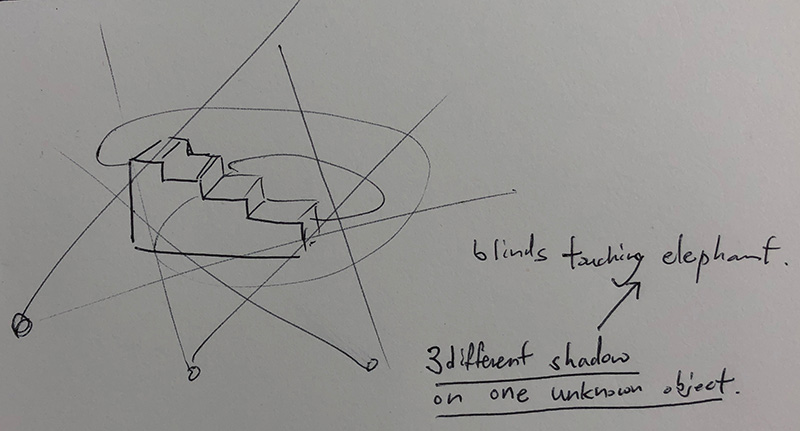 blinds touching elephant.
3 different shadow
on one unknown object.